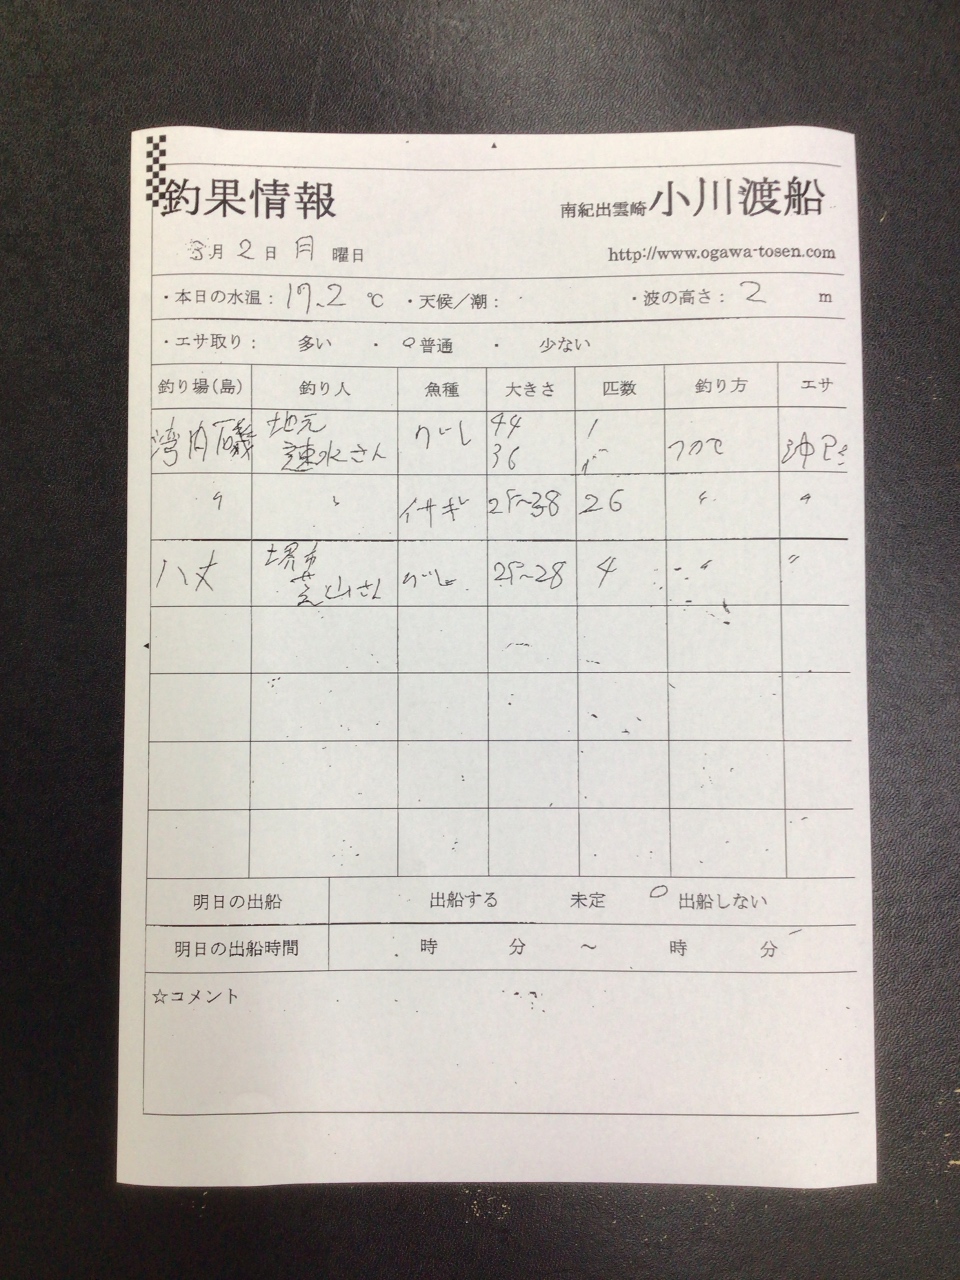 釣果情報
南紀出雲崎 小川渡船
3月 2 日 月 曜日
http://www.ogawa-tosen.com
・本日の水温: 17.2 ℃ ・天候／潮: ・波の高さ: 2 m
・エサ取り: 多い ・ ○普通 ・ 少ない
釣り場(島) 釣り人 魚種 大きさ 匹数 釣り方 エサ
湾内磯 地元 グレ 44 1 フカセ
速水さん 36 1
〃 〃 イサギ 25～38 26 〃 〃
八丈 堺市 グレ 25～28 4 〃 〃
芝山さん
明日の出船 出船する 未定 ○ 出船しない
明日の出船時間 時 分 ～ 時 分
☆コメント